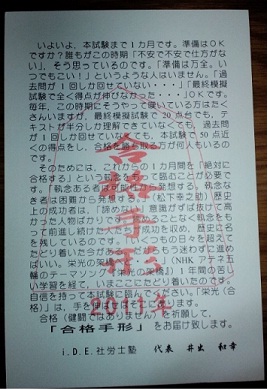 いよいよ、本試験まで１カ月です。準備はOK
ですか？誰もがこの時期「不安で不安で仕方がな
い」そう思っているのです。「準備は万全。い
つでもこい！」というような人はいません。「過
去問が１回しか回せていない・・・」「最終模擬
試験で全く得点が伸びなかった・・・」OKです。
毎年、この時期にそうやって嘆いている方はたく
さんいますが、最終模試験で20点台でも、テ
キストが半分しか理解できていなくても、過去問
が１回しか回せていなくても、本試験で50点近
くの得点をし、合格を勝ち取る方が何人もいるの
です。
そのためには、これからの１カ月間を「絶対に
合格する」という執念をもって臨むことが必要で
す。「執念ある者は可能性から発想する。執念な
き者は困難から発想する」（松下幸之助）歴史
上の成功者は、「諦めない」意識がずば抜けて高
かった人物ばかりです。諦めることなく執念をも
って前進し続けたたから、成功を収め、歴史に名
を残しているのです。いくつもの日々を超えて
たどり着いた今がある。だからもう迷わずに進め
ばいい。栄光の架橋へ・・・（NHK アテネ五
輪のテーマソング「栄光の架橋」）１年間の苦し
い学習を経て、いまここにたどり着いたのです。
自信を持って本試験に臨んでください。「栄光（合
格）」は、手を伸ばせばそこにあります。
合格（健闘ではありません）を祈願して、
「合格手形」をお届け致します。
i.D.E.社労士塾　代表　井出　和幸
合格手形
2011年